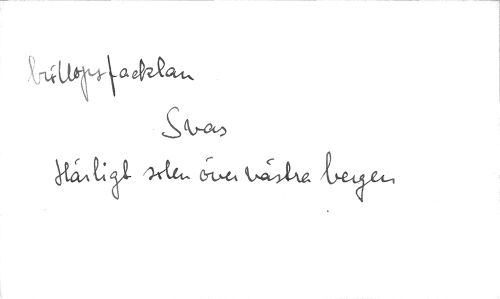 bröllopsfacklan
Svas
Härligt solen över västra bergen